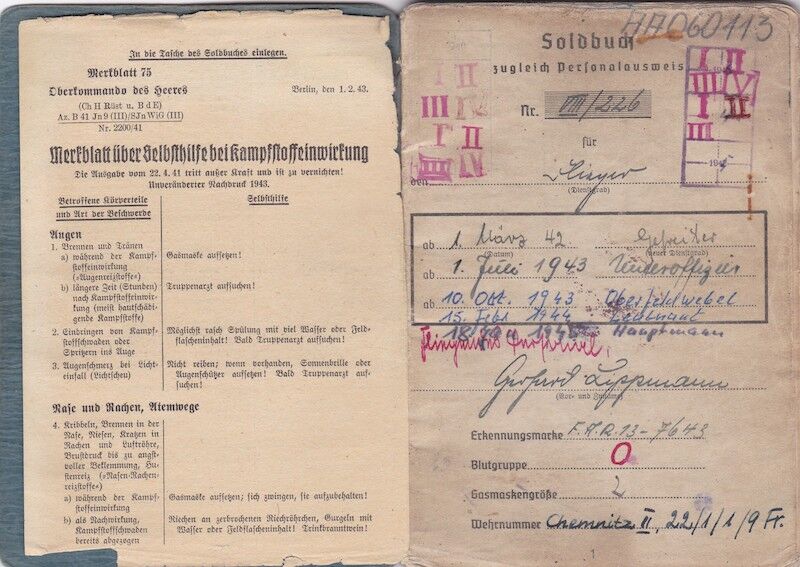 In die Tasche des Soldbuches einlegen.
Merkblatt 75
Oberkommando des Heeres
(Ch H Rüst u. B d E)
Az. B 41 Jn 9 (III)/SJn WiG (III)
Nr. 2200/41
Berlin, den 1. 2. 43.
Merkblatt über Selbsthilfe bei Kampfstoffeinwirkung
Die Ausgabe vom 22. 4. 41 tritt außer Kraft und ist zu vernichten!
Unveränderter Nachdruck 1943.
Betroffene Körperteile
und Art der Beschwerde
Selbsthilfe
Augen
1. Brennen und Tränen
a) während der Kampf-
stoffeinwirkung
(»Augenreizstoffe«)
Gasmaske aufsetzen!
b) längere Zeit (Stunden)
nach Kampfstoffeinwir-
kung (meist hautschädi-
gende Kampfstoffe)
Truppenarzt aufsuchen!
2. Eindringen von Kampf-
stoffschwaden oder
Spritzern ins Auge
Möglichst rasch Spülung mit viel Wasser oder Feld-
flascheninhalt! Bald Truppenarzt aufsuchen!
3. Augenschmerz bei Licht-
einfall (Lichtscheu)
Nicht reiben; wenn vorhanden, Sonnenbrille oder
Augenschützer aufsetzen! Bald Truppenarzt auf-
suchen!
Nase und Rachen, Atemwege
4. Kribbeln, Brennen in der
Nase, Niesen, Kratzen in
Rachen und Luftröhre,
Brustdruck bis zu angst-
voller Beklemmung, Hu-
stenreiz (»Nasen-Rachen-
reizstoffe«)
a) während der Kampf-
stoffeinwirkung
Gasmaske aufsetzen; sich zwingen, sie aufzubehalten!
b) als Nachwirkung,
Kampfstoffschwaden
bereits abgezogen
Riechen an zerbrochenen Riechröhrchen, Gurgeln mit
Wasser oder Feldflascheninhalt! Trinkbranntwein!
AA060113
Soldbuch
zugleich Personalausweis
Nr. VIII/226
für
Flieger
(Dienstgrad)
den
I II
III IV
I II
III IV
I II
III IV
I II
III
ab 1. März 42 Gefreiter
(Datum) (neuer Dienstgrad)
ab 1. Juli 1943 Unteroffizier
ab 10. Okt. 1943 Oberfeldwebel
15. Febr. 1944 Leutnant
Hauptmann
Gerhard Lippmann
(Vor- und Zuname)
Erkennungsmarke F.A.R. 13-7/643
Blutgruppe O
Gasmaskengröße 2
Wehrnummer Chemnitz II, 22/1/1/9 Fr.
1